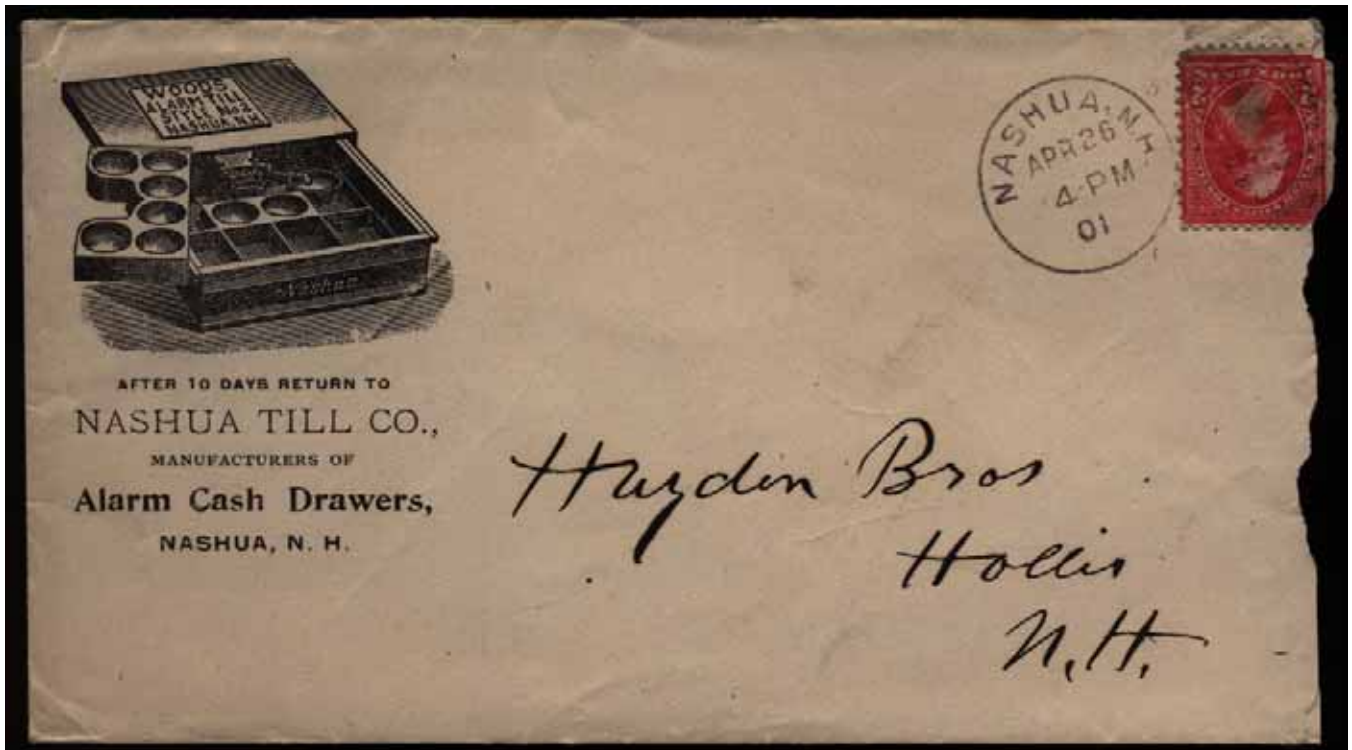 WOODS
ALARM TILL
STYLE No 2
NASHUA. N.H
Nashua
AFTER 10 DAYS RETURN TO
NASHUA TILL CO.,
MANUFACTURERS OF
Alarm Cash Drawers,
NASHUA, N. H.
NASHUA, N.H.
APR 26
4-PM
01
Haydin Bros
Hollis
N.H.